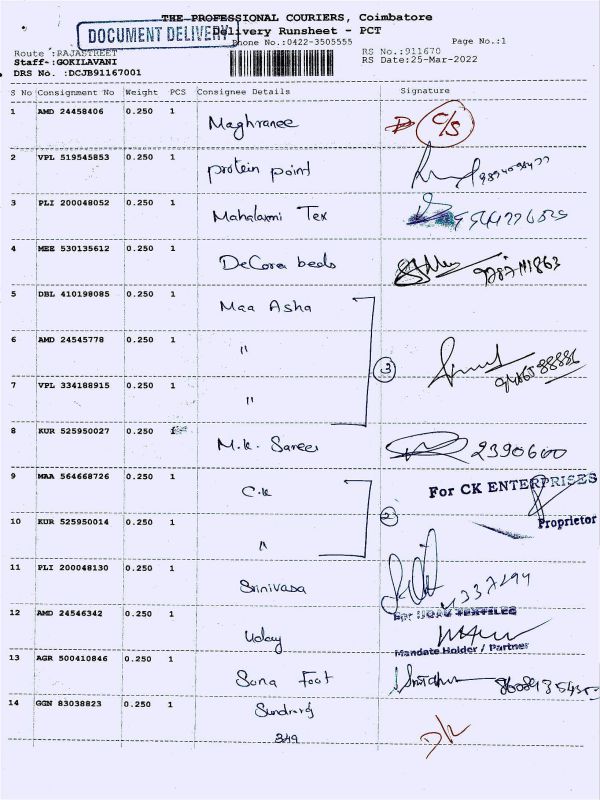 THE PROFESSIONAL COURIERS, Coimbatore
DOCUMENT DELIVERY
Delivery Runsheet - PCT
Phone No.:0422-3505555 Page No.:1
Route :RAJASTREET RS No.:911670
Staff-:GOKILAVANI RS Date:25-Mar-2022
DRS No. :DCJB91167001
S No Consignment No Weight PCS Consignee Details Signature
1 AMD 24458406 0.250 1 Maghranee C/S
2 VPL 519545853 0.250 1 protein point
3 PLI 200048052 0.250 1 Mahalaxmi Tex
4 MEE 530135612 0.250 1 DeCora beds
5 DBL 410198085 0.250 1 Maa Asha
6 AMD 24545778 0.250 1 "
3
7 VPL 334188915 0.250 1 "
8 KUR 525950027 0.250 M.K. Sarees 2390600
9 MAA 564668726 0.250 1 C.K For CK ENTERPRISES
2
10 KUR 525950014 0.250 1 " Proprietor
11 PLI 200048130 0.250 1 Srinivasa
For UDAY TEXTILES
12 AMD 24546342 0.250 1 Uday
Mandate Holder / Partner
13 AGR 500410846 0.250 1 Sona Foot
14 GGN 83038823 0.250 1
349 D/L